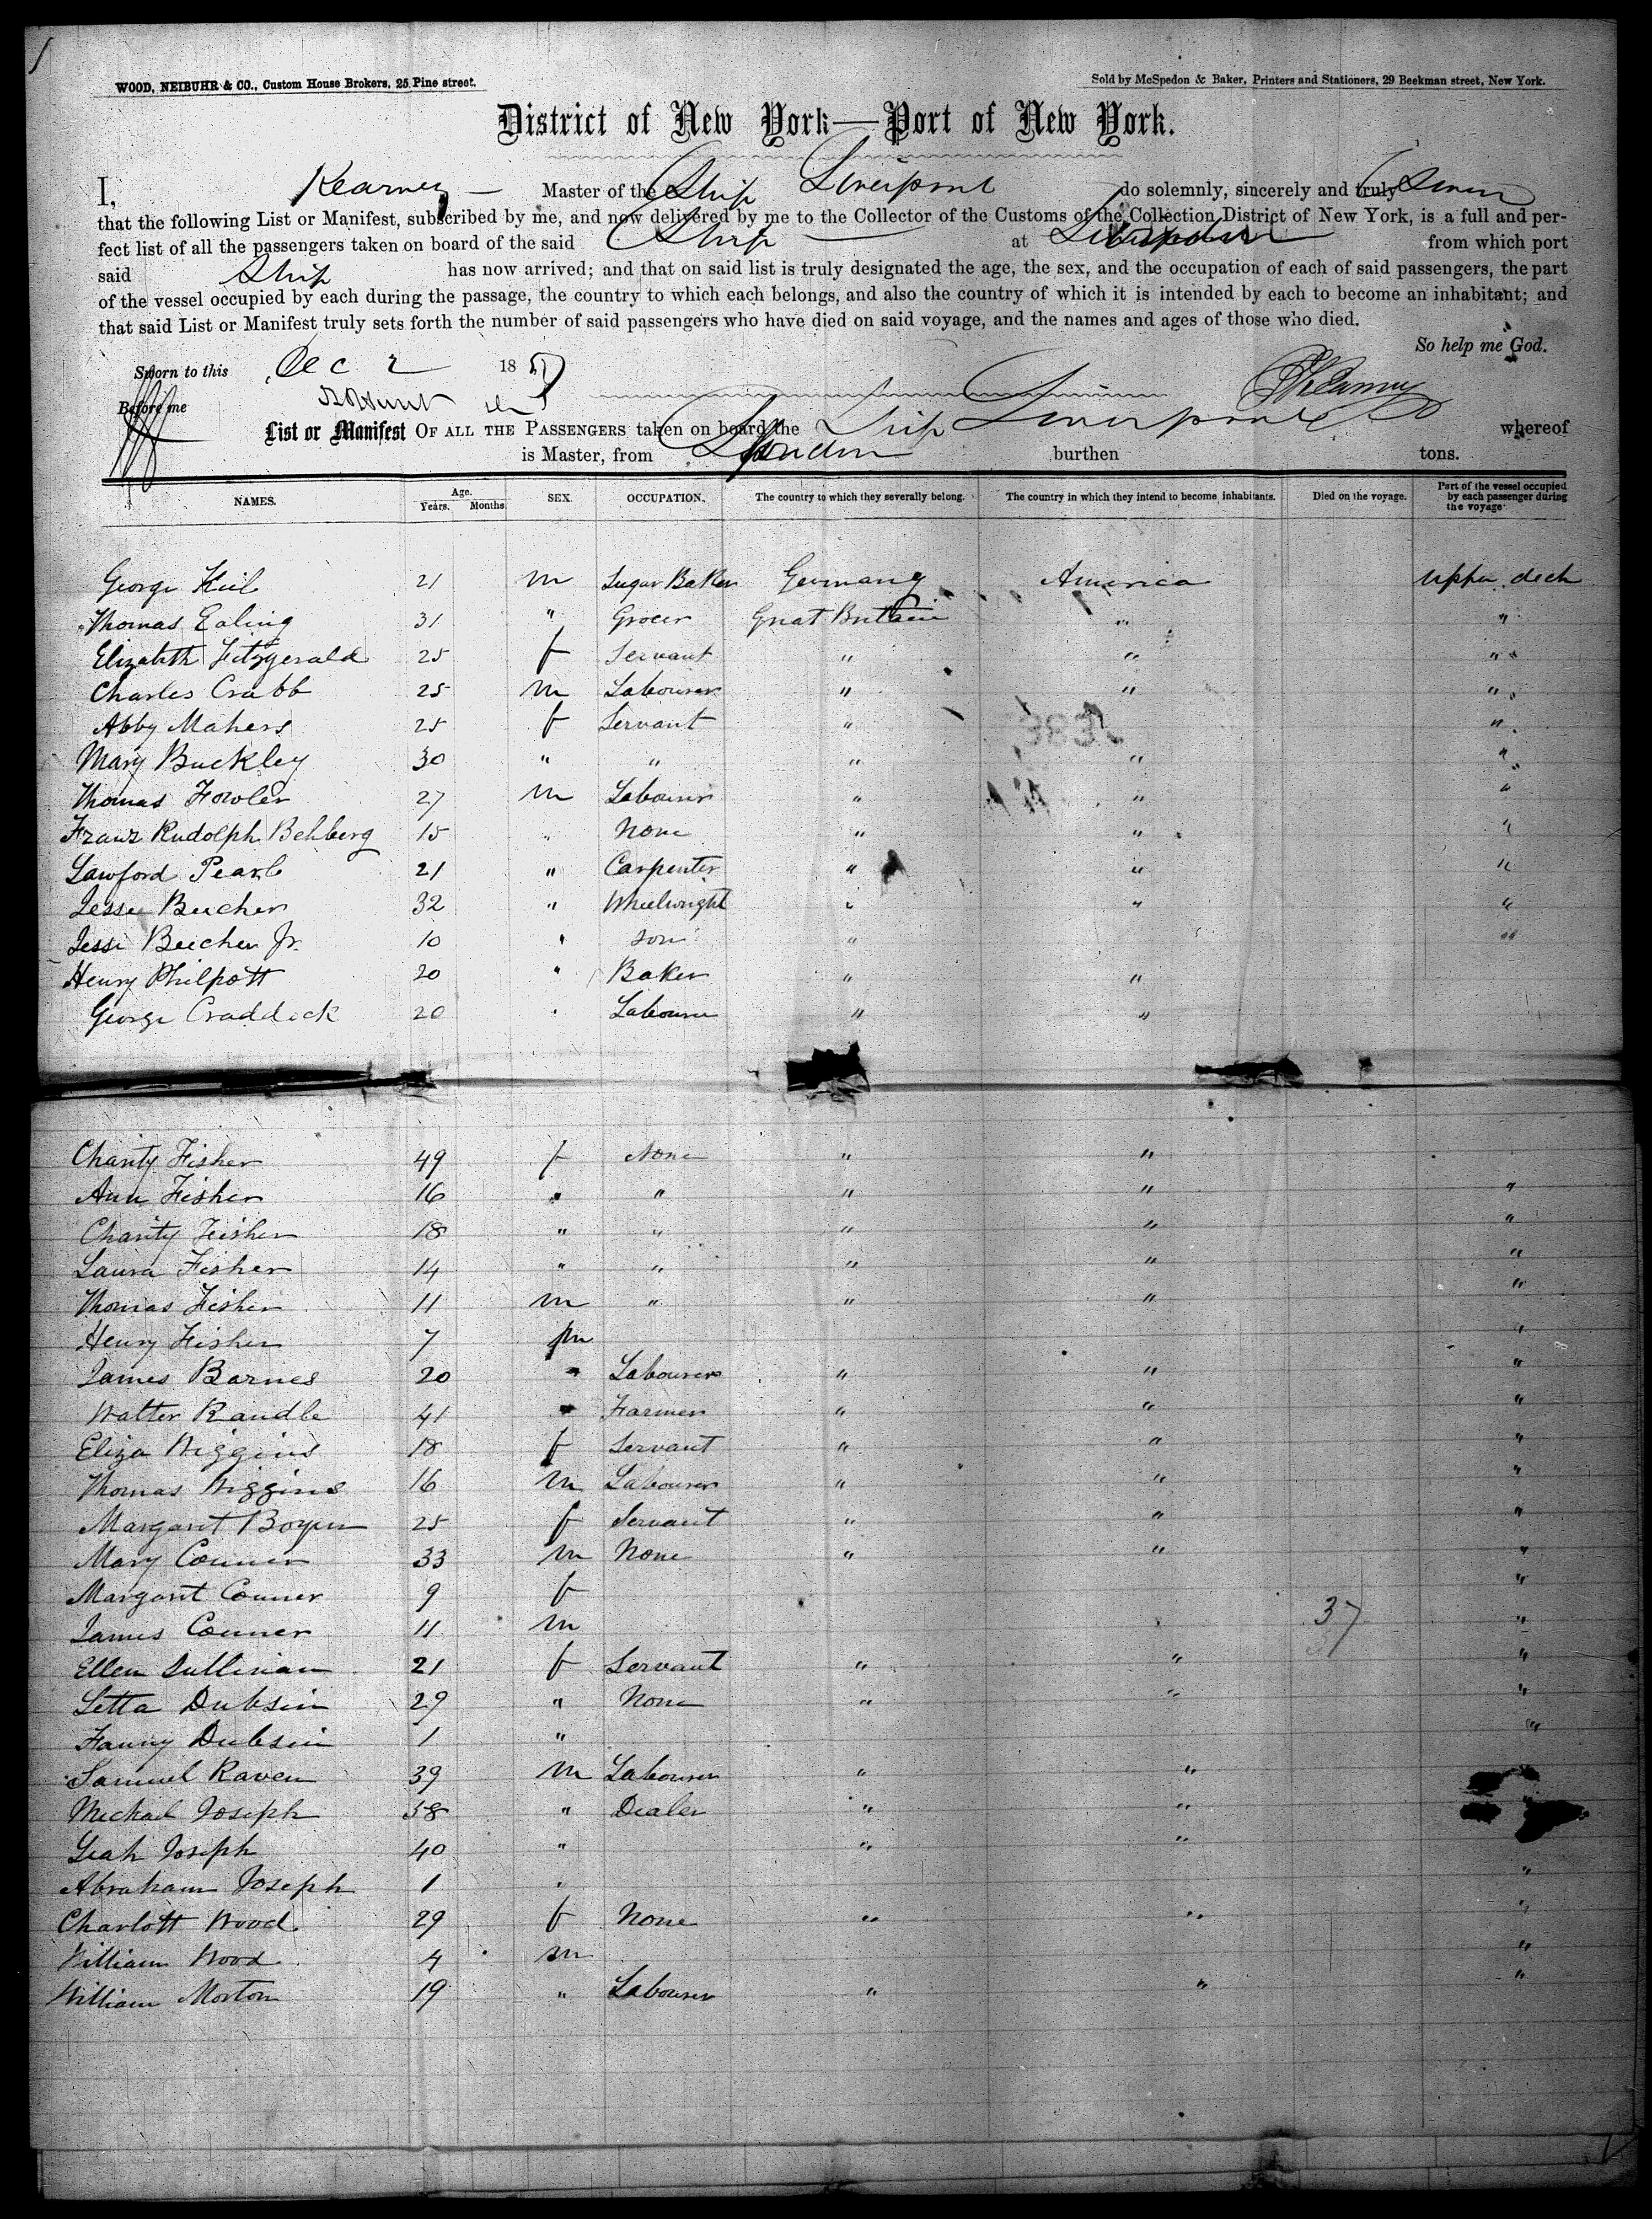 WOOD, NEIBUHR & CO., Custom House Brokers, 25 Pine street.
Sold by McSpedon & Baker, Printers and Stationers, 29 Beekman street, New York.
District of New York—Port of New York.
I, Kearney Master of the Ship Liverpool do solemnly, sincerely and truly Swear
that the following List or Manifest, subscribed by me, and now delivered by me to the Collector of the Customs of the Collection District of New York, is a full and per-
fect list of all the passengers taken on board of the said Ship at from which port
said Ship has now arrived; and that on said list is truly designated the age, the sex, and the occupation of each of said passengers, the part
of the vessel occupied by each during the passage, the country to which each belongs, and also the country of which it is intended by each to become an inhabitant; and
that said List or Manifest truly sets forth the number of said passengers who have died on said voyage, and the names and ages of those who died.
So help me God.
Sworn to this Dec 2 185
Before me
List or Manifest OF ALL THE PASSENGERS taken on board the Ship Liverpool whereof
is Master, from London burthen tons.
NAMES. Age. Years. Months. SEX. OCCUPATION. The country to which they severally belong. The country in which they intend to become inhabitants. Died on the voyage. Part of the vessel occupied by each passenger during the voyage
George Keil 21 m Sugar Baker Germany America Upper deck
Thomas Ealing 31 " Grocer Great Britain " "
Elizabeth Fitzgerald 25 f Servant " " "
Charles Crabb 25 m Labourer " " "
Abby Mahers 25 f Servant " "
Mary Buckley 30 " " " " "
Thomas Fowler 27 m Labourer " " "
Franz Rudolph Behberg 15 " None " " "
Lawford Pearl 21 " Carpenter " " "
Jesse Beecher 32 " Wheelwright " " "
Jesse Beecher Jr. 10 " son " "
Henry Philpott 20 " Baker " "
George Craddock 20 " Labourer " "
Charity Fisher 49 f None " "
Ann Fisher 16 " " " " "
Charity Fisher 18 " " " " "
Laura Fisher 14 " " " " "
Thomas Fisher 11 m " " " "
Henry Fisher 7 m "
James Barnes 20 " Labourer " " "
Walter Randle 41 " Farmer " " "
Eliza Wiggins 18 f Servant " " "
Thomas Wiggins 16 m Labourer " " "
Margaret Boyen 25 f Servant " " "
Mary Conner 33 m None " " "
Margaret Conner 9 f "
James Conner 11 m 37 "
Ellen Sullivan 21 f Servant " " "
Letta Dubsin 29 " None " " "
Fanny Dubsin 1 " "
Samuel Raven 39 m Labourer " "
Michael Joseph 38 " Dealer " "
Leah Joseph 40 " " "
Abraham Joseph 1 " "
Charlott Wood 29 f None " " "
William Wood 4 m "
William Morton 19 " Labourer " " "